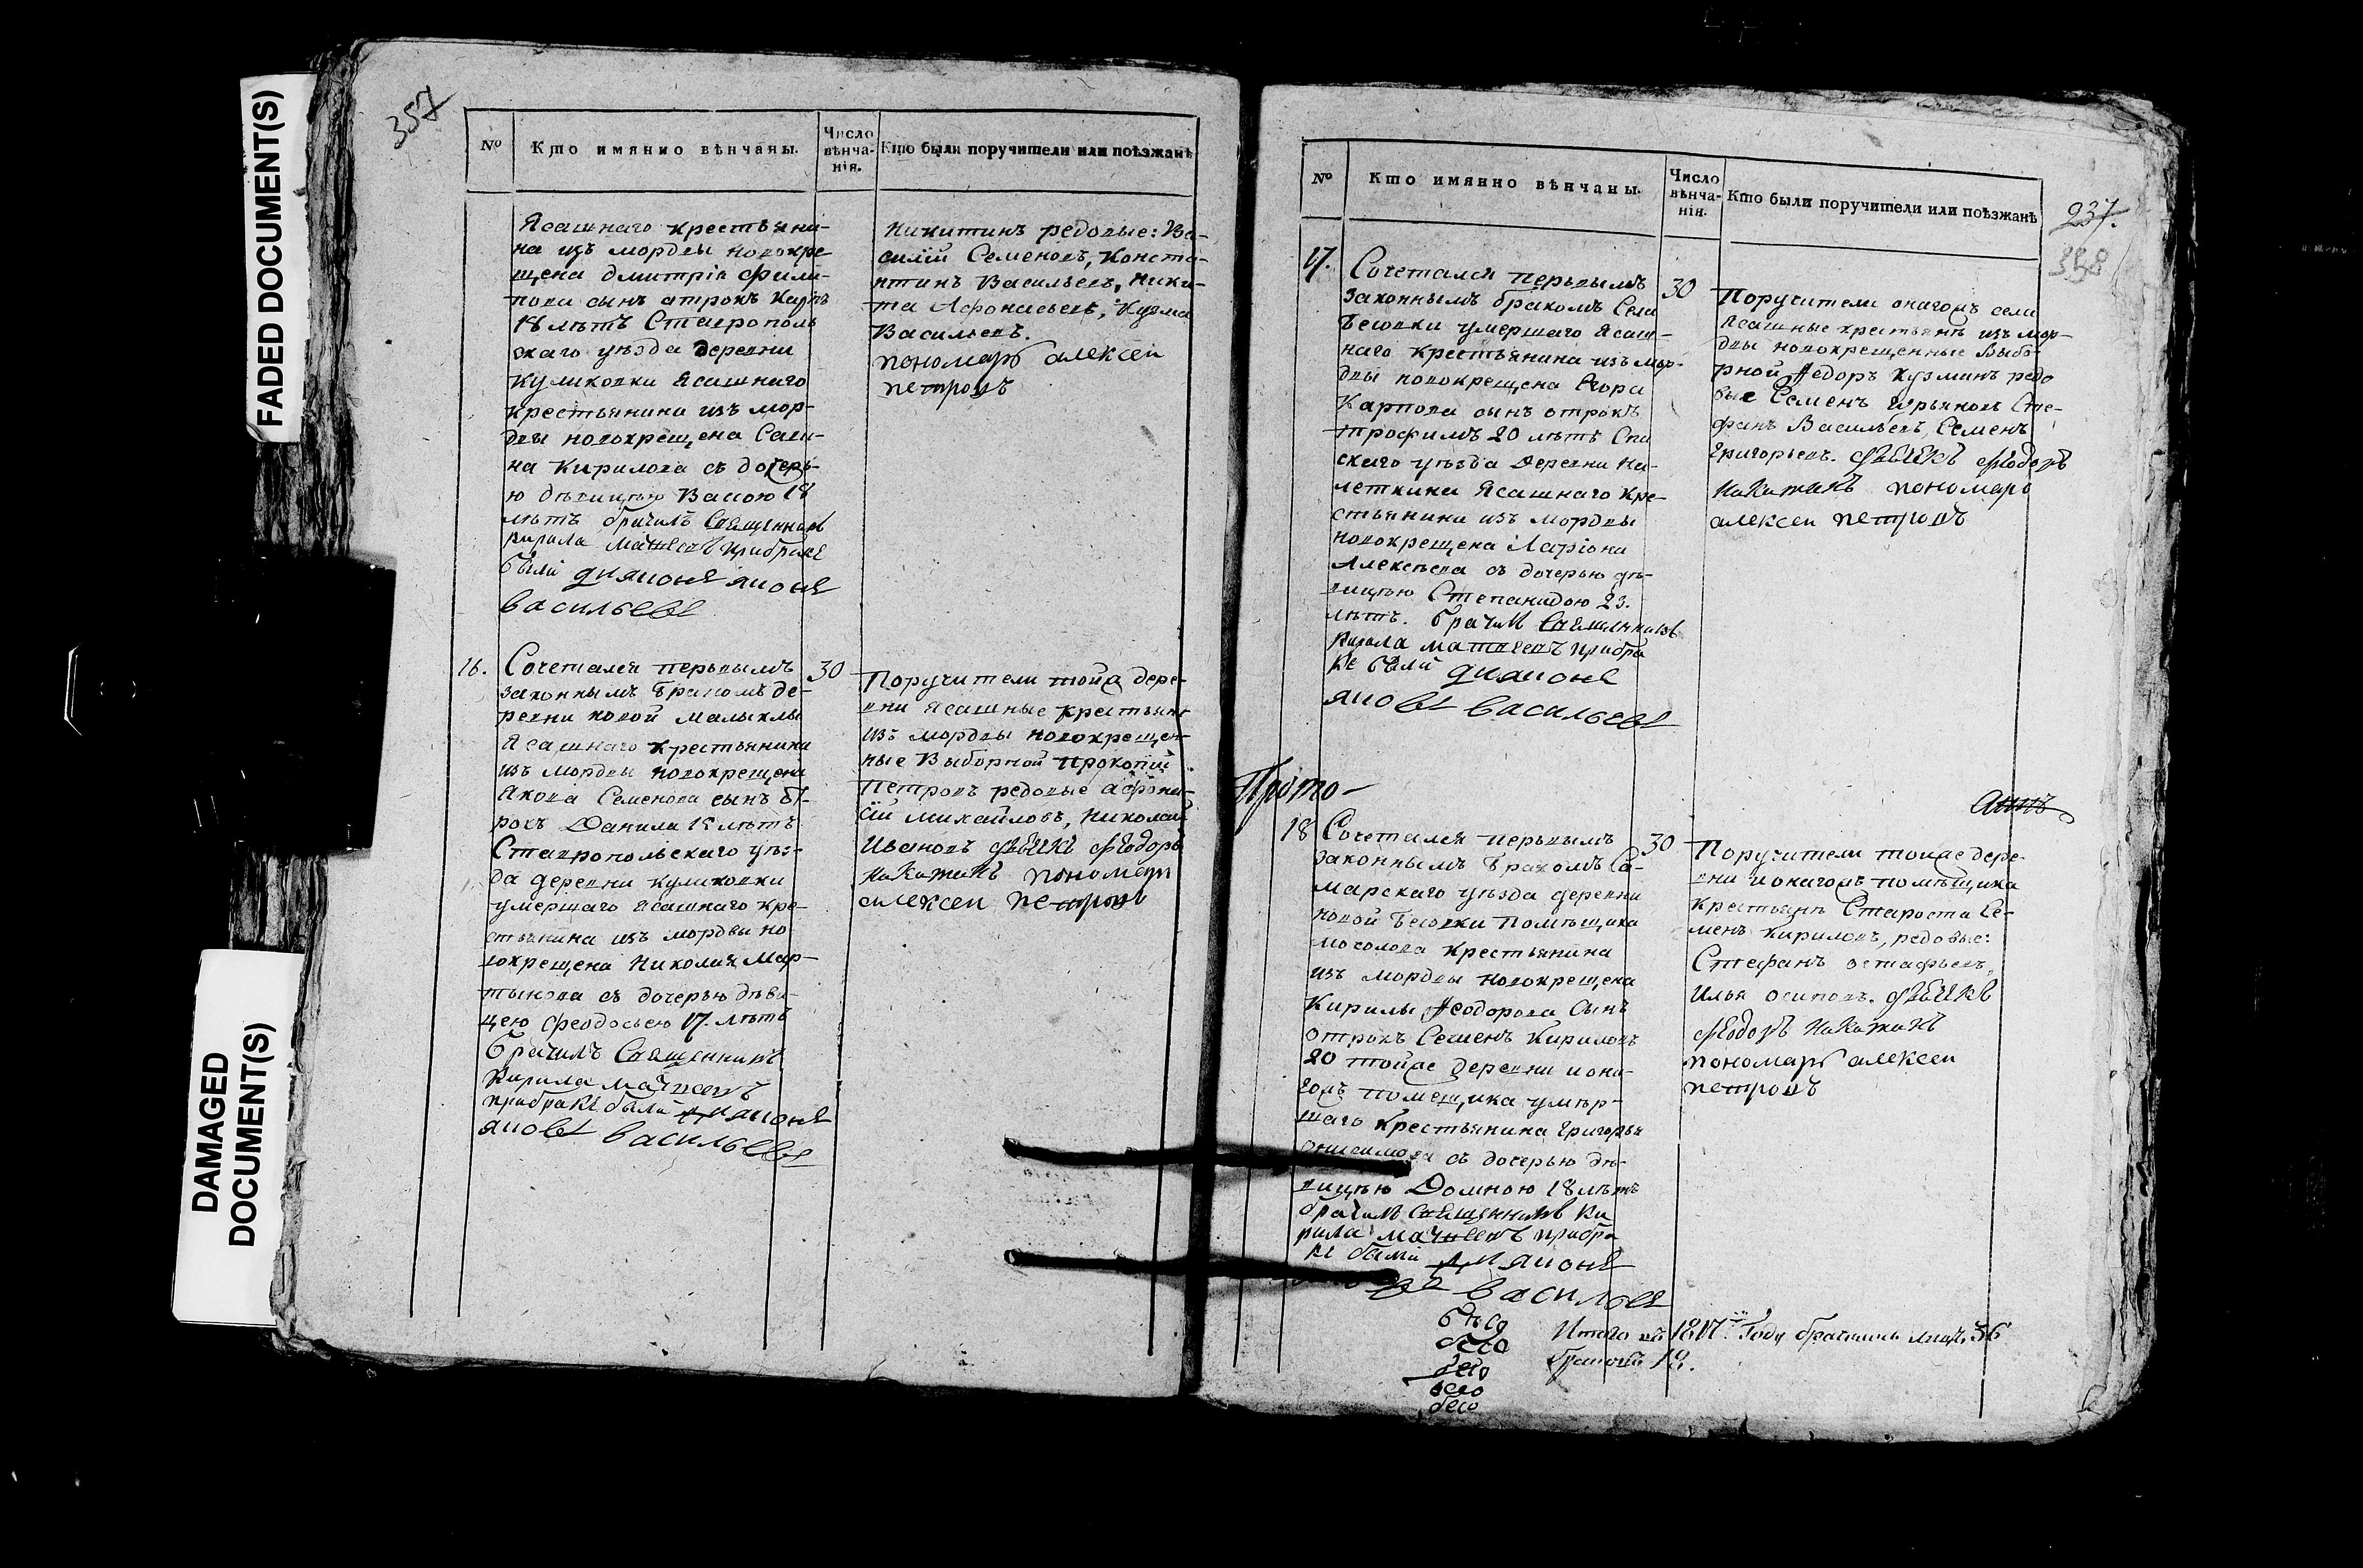 FADED DOCUMENT(S)
DAMAGED
DOCUMENT(S)
357
№
Кто имянно вѣнчаны.
Число
вѣнча-
нія.
Кто были поручители или поѣзжанѣ
Ясашнаго крестьяни-
на изъ мордвы новокре
щена Дмитрія Фили-
пова сынъ отрокъ Карпъ
18 лѣтъ Ставрополь
скаго уѣзда деревни
Куликовки Ясашнаго
крестьянина изъ мор-
двы новокрещена
на Кирилова съ дочерь-
ю дѣвицею 18
лѣтъ брачилъ Священникъ
Кирила Матвеевъ прибраке
были
васильевъ
Никитинъ редовые: Ва-
силій Семеновъ, Конста-
нтинъ Васильевъ, Ники-
та Афонасьевъ, Кузма
Васильевъ.
пономарь алексеи
петровъ
16.
Сочетался первымъ
законнымъ бракомъ де-
ревни новой малыклы
Ясашнаго крестьянина
изъ мордвы новокрещена
Якова Семенова сынъ от-
рокъ Данила лѣтъ
Ставропольскаго уѣз-
да деревни куликовки
умершаго ясашнаго кре-
стьянина изъ мордвы но
вокрещена Николая Мар-
тынова съ дочерью дѣви-
цею Феодосьею 17. лѣтъ
брачилъ Священникъ
Кирила матвеевъ
прибраке были
васильевъ
30
Поручители тойже дере-
вни Ясашные крестьяне
изъ мордвы новокрещен-
ные Выборной Прокопій
Петровъ редовые Афона-
сій Михайловъ, Николай
Ивановъ дьячекъ Федоръ
пономарь
алексеи петровъ
№
Кто имянно вѣнчаны.
Число
вѣнча-
нія.
Кто были поручители или поѣзжанѣ
237.
358
17.
Сочетался первымъ
законнымъ бракомъ Села
Бесовки умершаго Ясаш-
наго крестьянина изъ мор-
двы новокрещена Егора
Карпова сынъ отрокъ
Трофимъ 20 лѣтъ Спа
скаго уѣзда деревни На-
леткина Ясашнаго кре-
стьянина изъ мордвы
новокрещена Ларіона
Алексѣева съ дочерью дѣ-
вицею Степанидою 23.
лѣтъ. брачилъ Священникъ
Кирила матвеевъ прибра
ке были
васильевъ
30
Поручители онагожъ села
Ясашные крестьянѣ изъ мор-
двы новокрещенные Выбо-
рной Федоръ Кузминъ редо
вые Семенъ Юрьяновъ Сте-
фанъ Васильевъ, Семенъ
Григорьевъ. дьячекъ Федоръ
пономарь
алексеи петровъ
Прото-
18
Сочетался первымъ
законнымъ бракомъ Са-
марскаго уѣзда деревни
новой Бесовки помѣщика
мосолова крестьянина
изъ мордвы новокрещена
Кирилы Феодорова сынъ
отрокъ Семенъ Кириловъ
20 тойже деревни и она-
гожъ помещика умер-
шаго крестьянина Григорья
Онисимова съ дочерью дѣ-
вицею Домною 18 лѣтъ
брачилъ Священникъ Ки
рила матвеевъ прибра
ке были
васильевъ
30
Поручители тойже дере-
вни и онагожъ помѣщика
крестьянѣ Староста Се-
менъ Кириловъ, редовые:
Стефанъ остафьевъ,
Илья осиповъ. дьячекъ
Федоръ
пономарь алексеи
петровъ
Итого въ 1817 Году брачилось лицъ 36
браковъ 18.